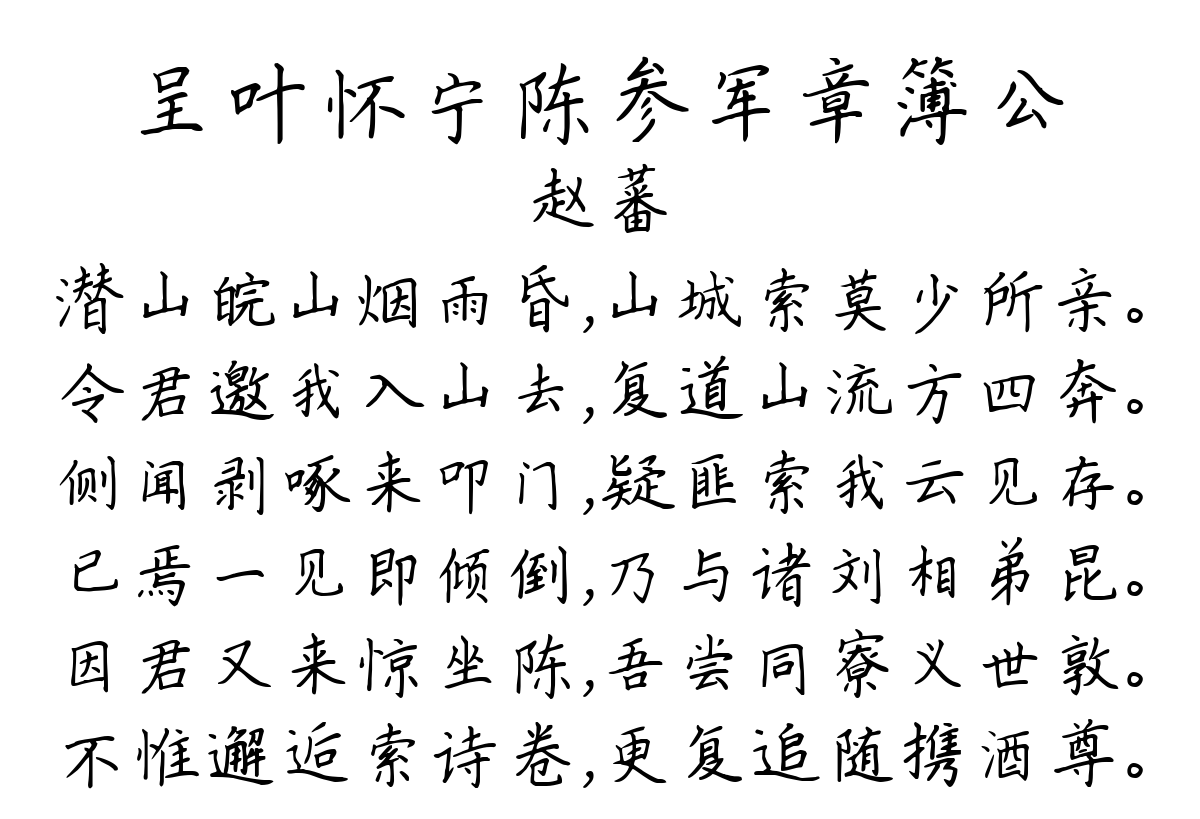 呈叶怀宁陈参军章簿公
赵蕃
潜山皖山烟雨昏,山城索莫少所亲。
令君邀我入山去,复道山流方四奔。
侧闻剥啄来叩门,疑匪索我云见存。
已焉一见即倾倒,乃与诸刘相弟昆。
因君又来惊坐陈,吾尝同寮义世敦。
不惟邂逅索诗卷,更复追随携酒尊。